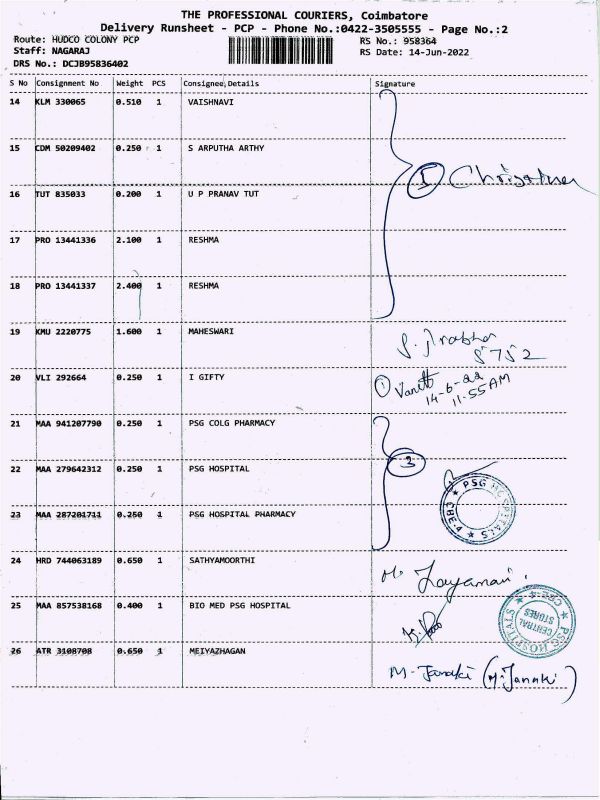 THE PROFESSIONAL COURIERS, Coimbatore
Delivery Runsheet - PCP - Phone No.:0422-3505555 - Page No.:2
Route: HUDCO COLONY PCP
RS No.: 958364
Staff: NAGARAJ
RS Date: 14-Jun-2022
DRS No.: DCJB95836402
S No Consignment No Weight PCS Consignee Details Signature
14 KLM 330065 0.510 1 VAISHNAVI
15 CDM 50209402 0.250 1 S ARPUTHA ARTHY
16 TUT 835033 0.200 1 U P PRANAV TUT
17 PRO 13441336 2.100 1 RESHMA
18 PRO 13441337 2.400 1 RESHMA
19 KMU 2220775 1.600 1 MAHESWARI
S. Prabha
8752
20 VLI 292664 0.250 1 I GIFTY
1
14-6-22
11-55 AM
21 MAA 941207790 0.250 1 PSG COLG PHARMACY
22 MAA 279642312 0.250 1 PSG HOSPITAL
3
★ PSG HOSPITALS ★ CBE-4
23 MAA 287201711 0.250 1 PSG HOSPITAL PHARMACY
24 HRD 744063189 0.650 1 SATHYAMOORTHI
25 MAA 857538168 0.400 1 BIO MED PSG HOSPITAL
★ PSG HOSPITALS ★ CBE-4
CENTRAL
STORES
26 ATR 3108708 0.650 1 MEIYAZHAGAN
M. Janaki (M. Janaki)